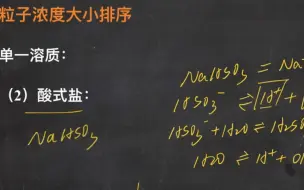 粒子浓度大小排序
单一溶质：
（2）酸式盐：
NaHSO₃
NaHSO₃ = Na
HSO₃⁻ ⇌ H⁺ +
HSO₃⁻ + H₂O ⇌ H₂S
H₂O ⇌ H⁺ + O